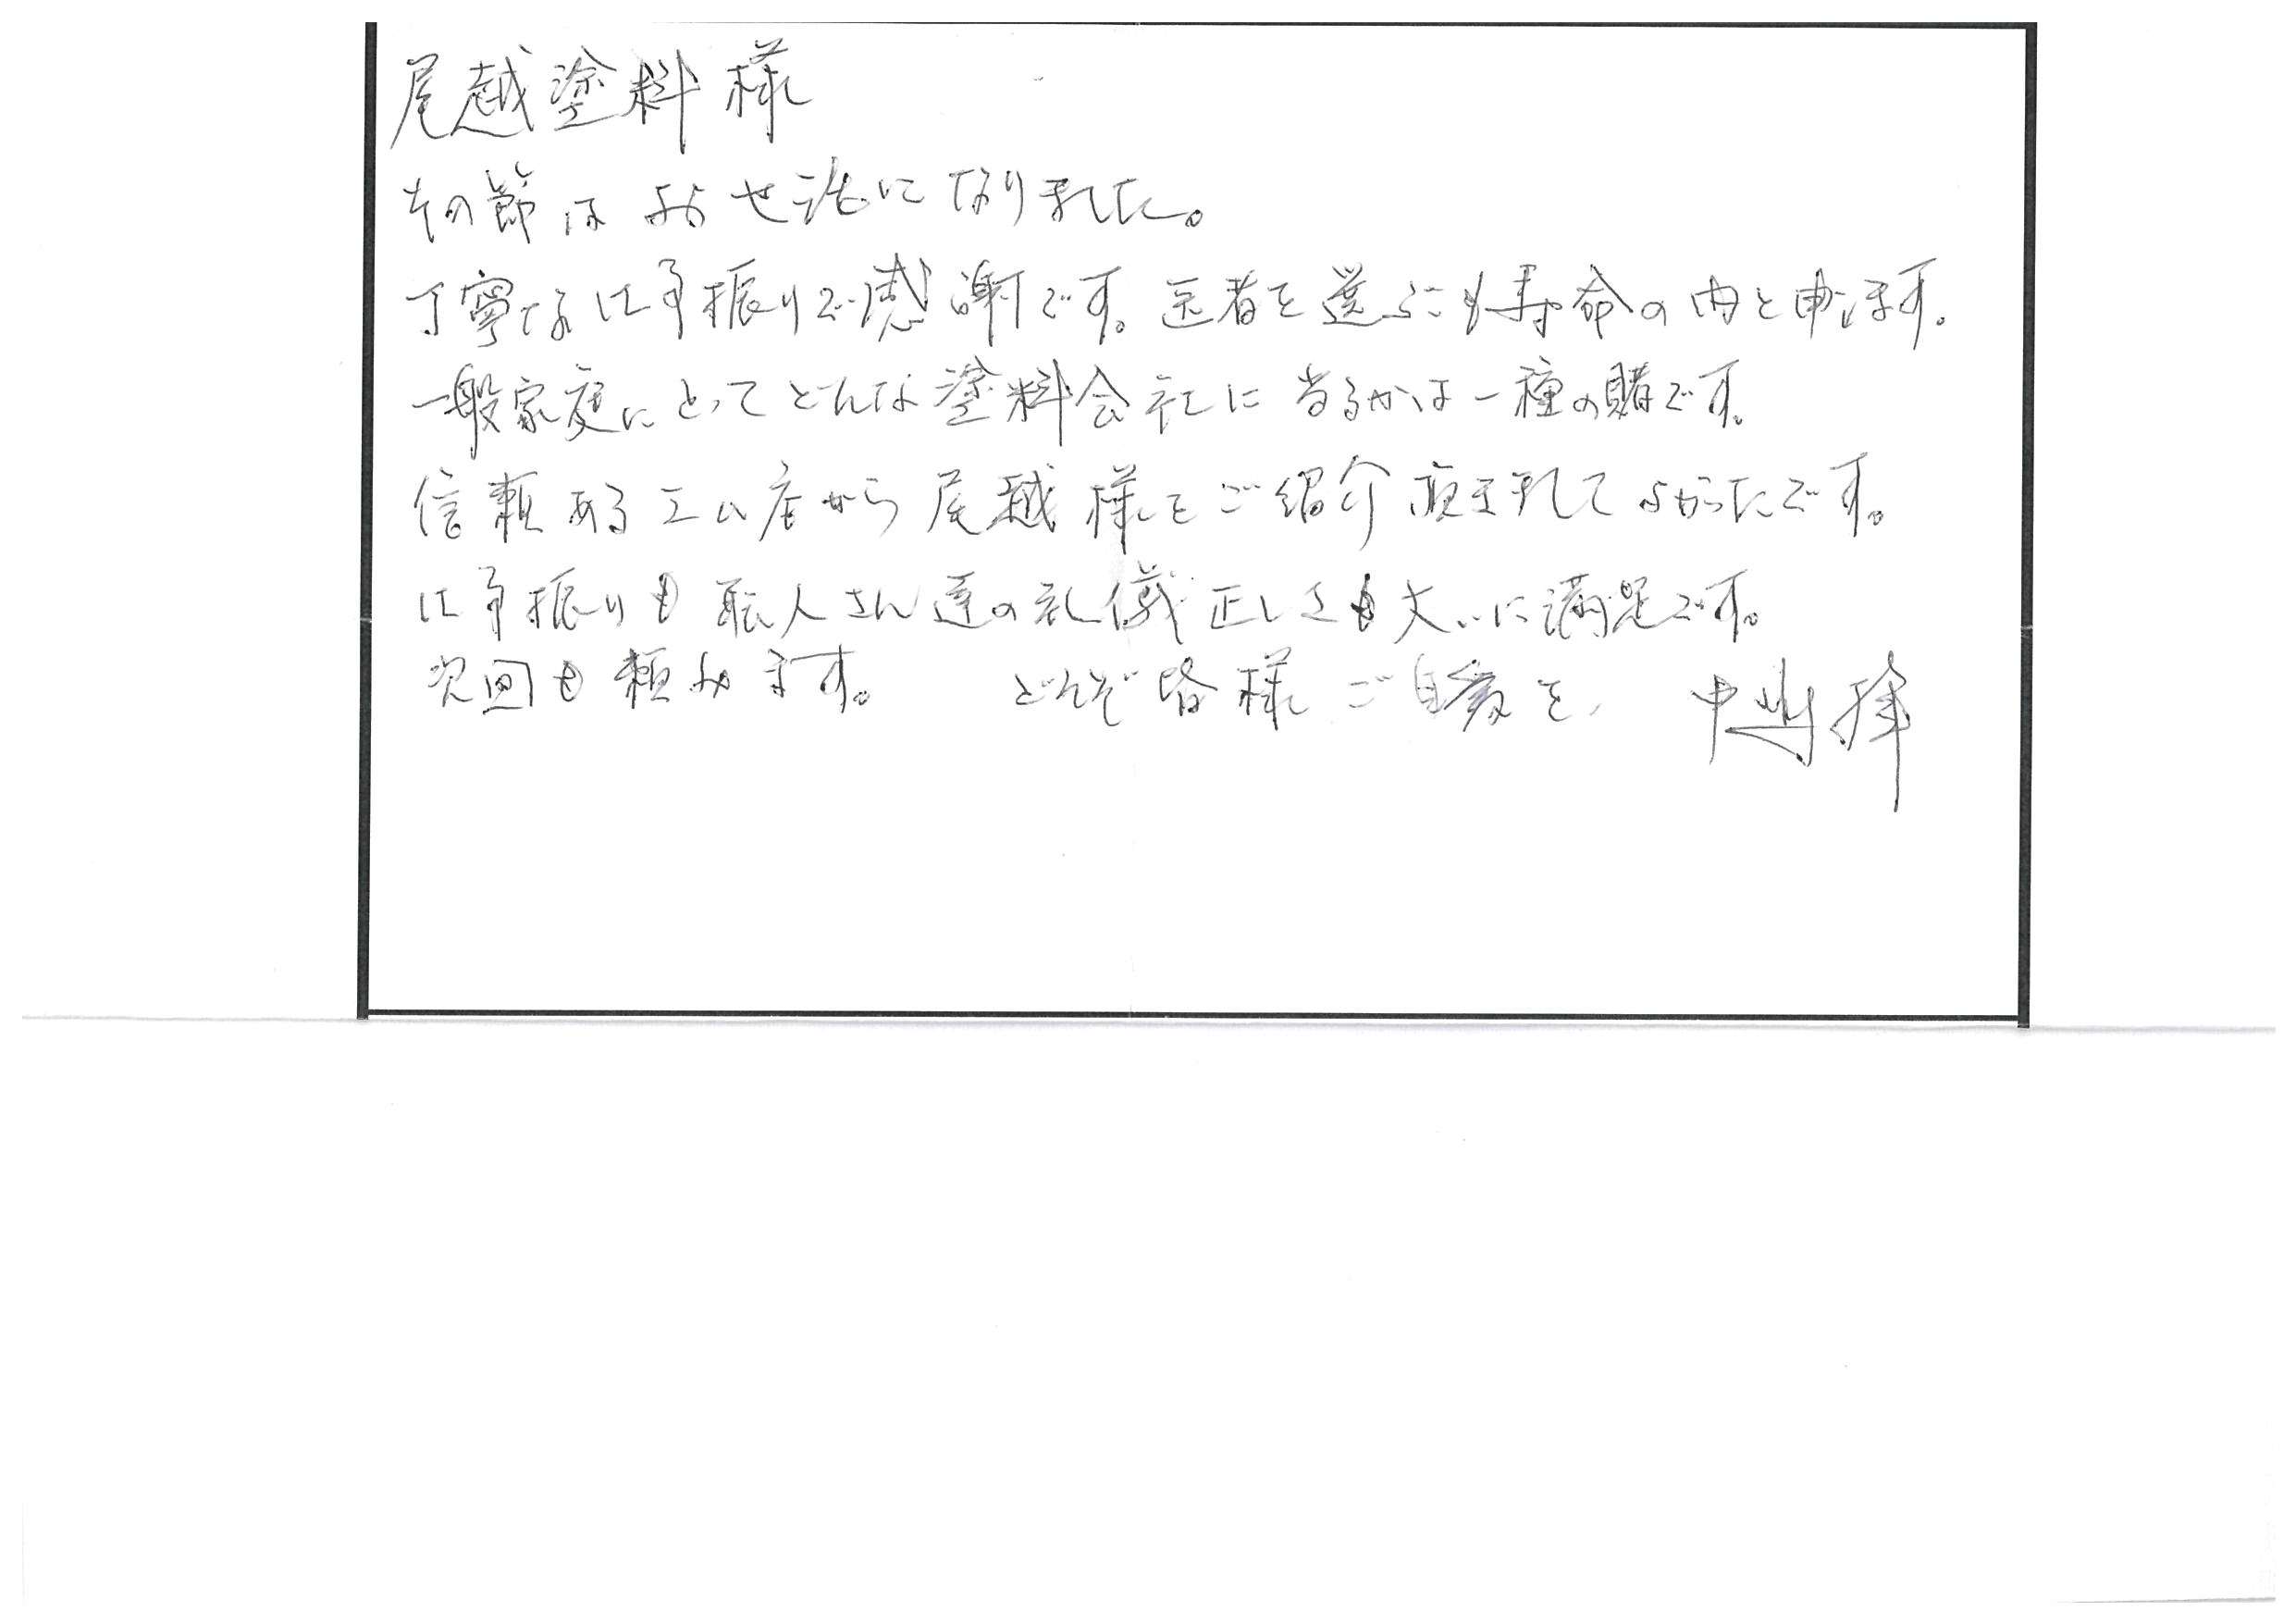 尾越塗料様
その節はお世話になりました。
丁寧な仕事振りで感謝です。医者を選ぶも寿命の内と申します。
一般家庭にとってどんな塗料会社に当るかは一種の賭です。
信頼ある工ム店から尾越様をご紹介頂きましてよかったです。
仕事振りも職人さん達の礼儀正しさも大いに満足です。
次回も頼みます。 どうぞ皆様ご自愛を、 中